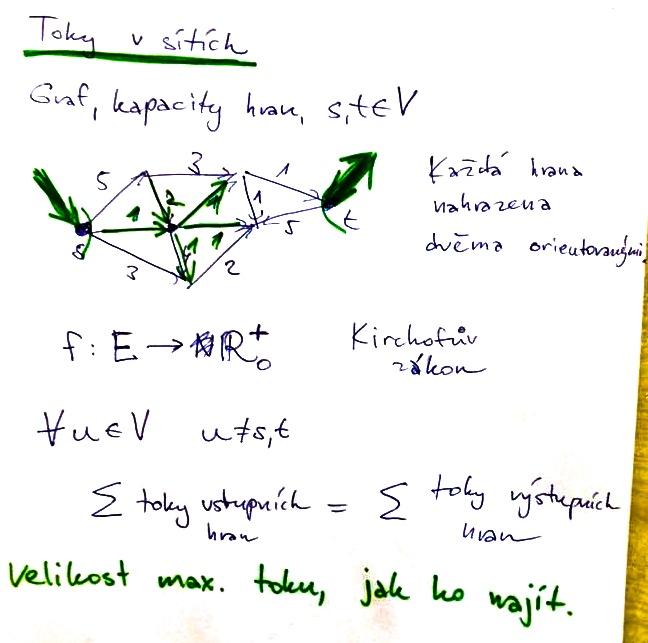 Toky v sítích
Graf, kapacity hran, s,t ∈ V
5 3 1
2 1 1
1 1 5
s t
3 1 2
Každá hrana
nahrazena
dvěma orientovanými.
f: E → R₀⁺
Kirchofův
zákon
∀u ∈ V u ≠ s,t
∑ toky vstupních hran = ∑ toky výstupních hran
Velikost max. toku, jak ho najít.